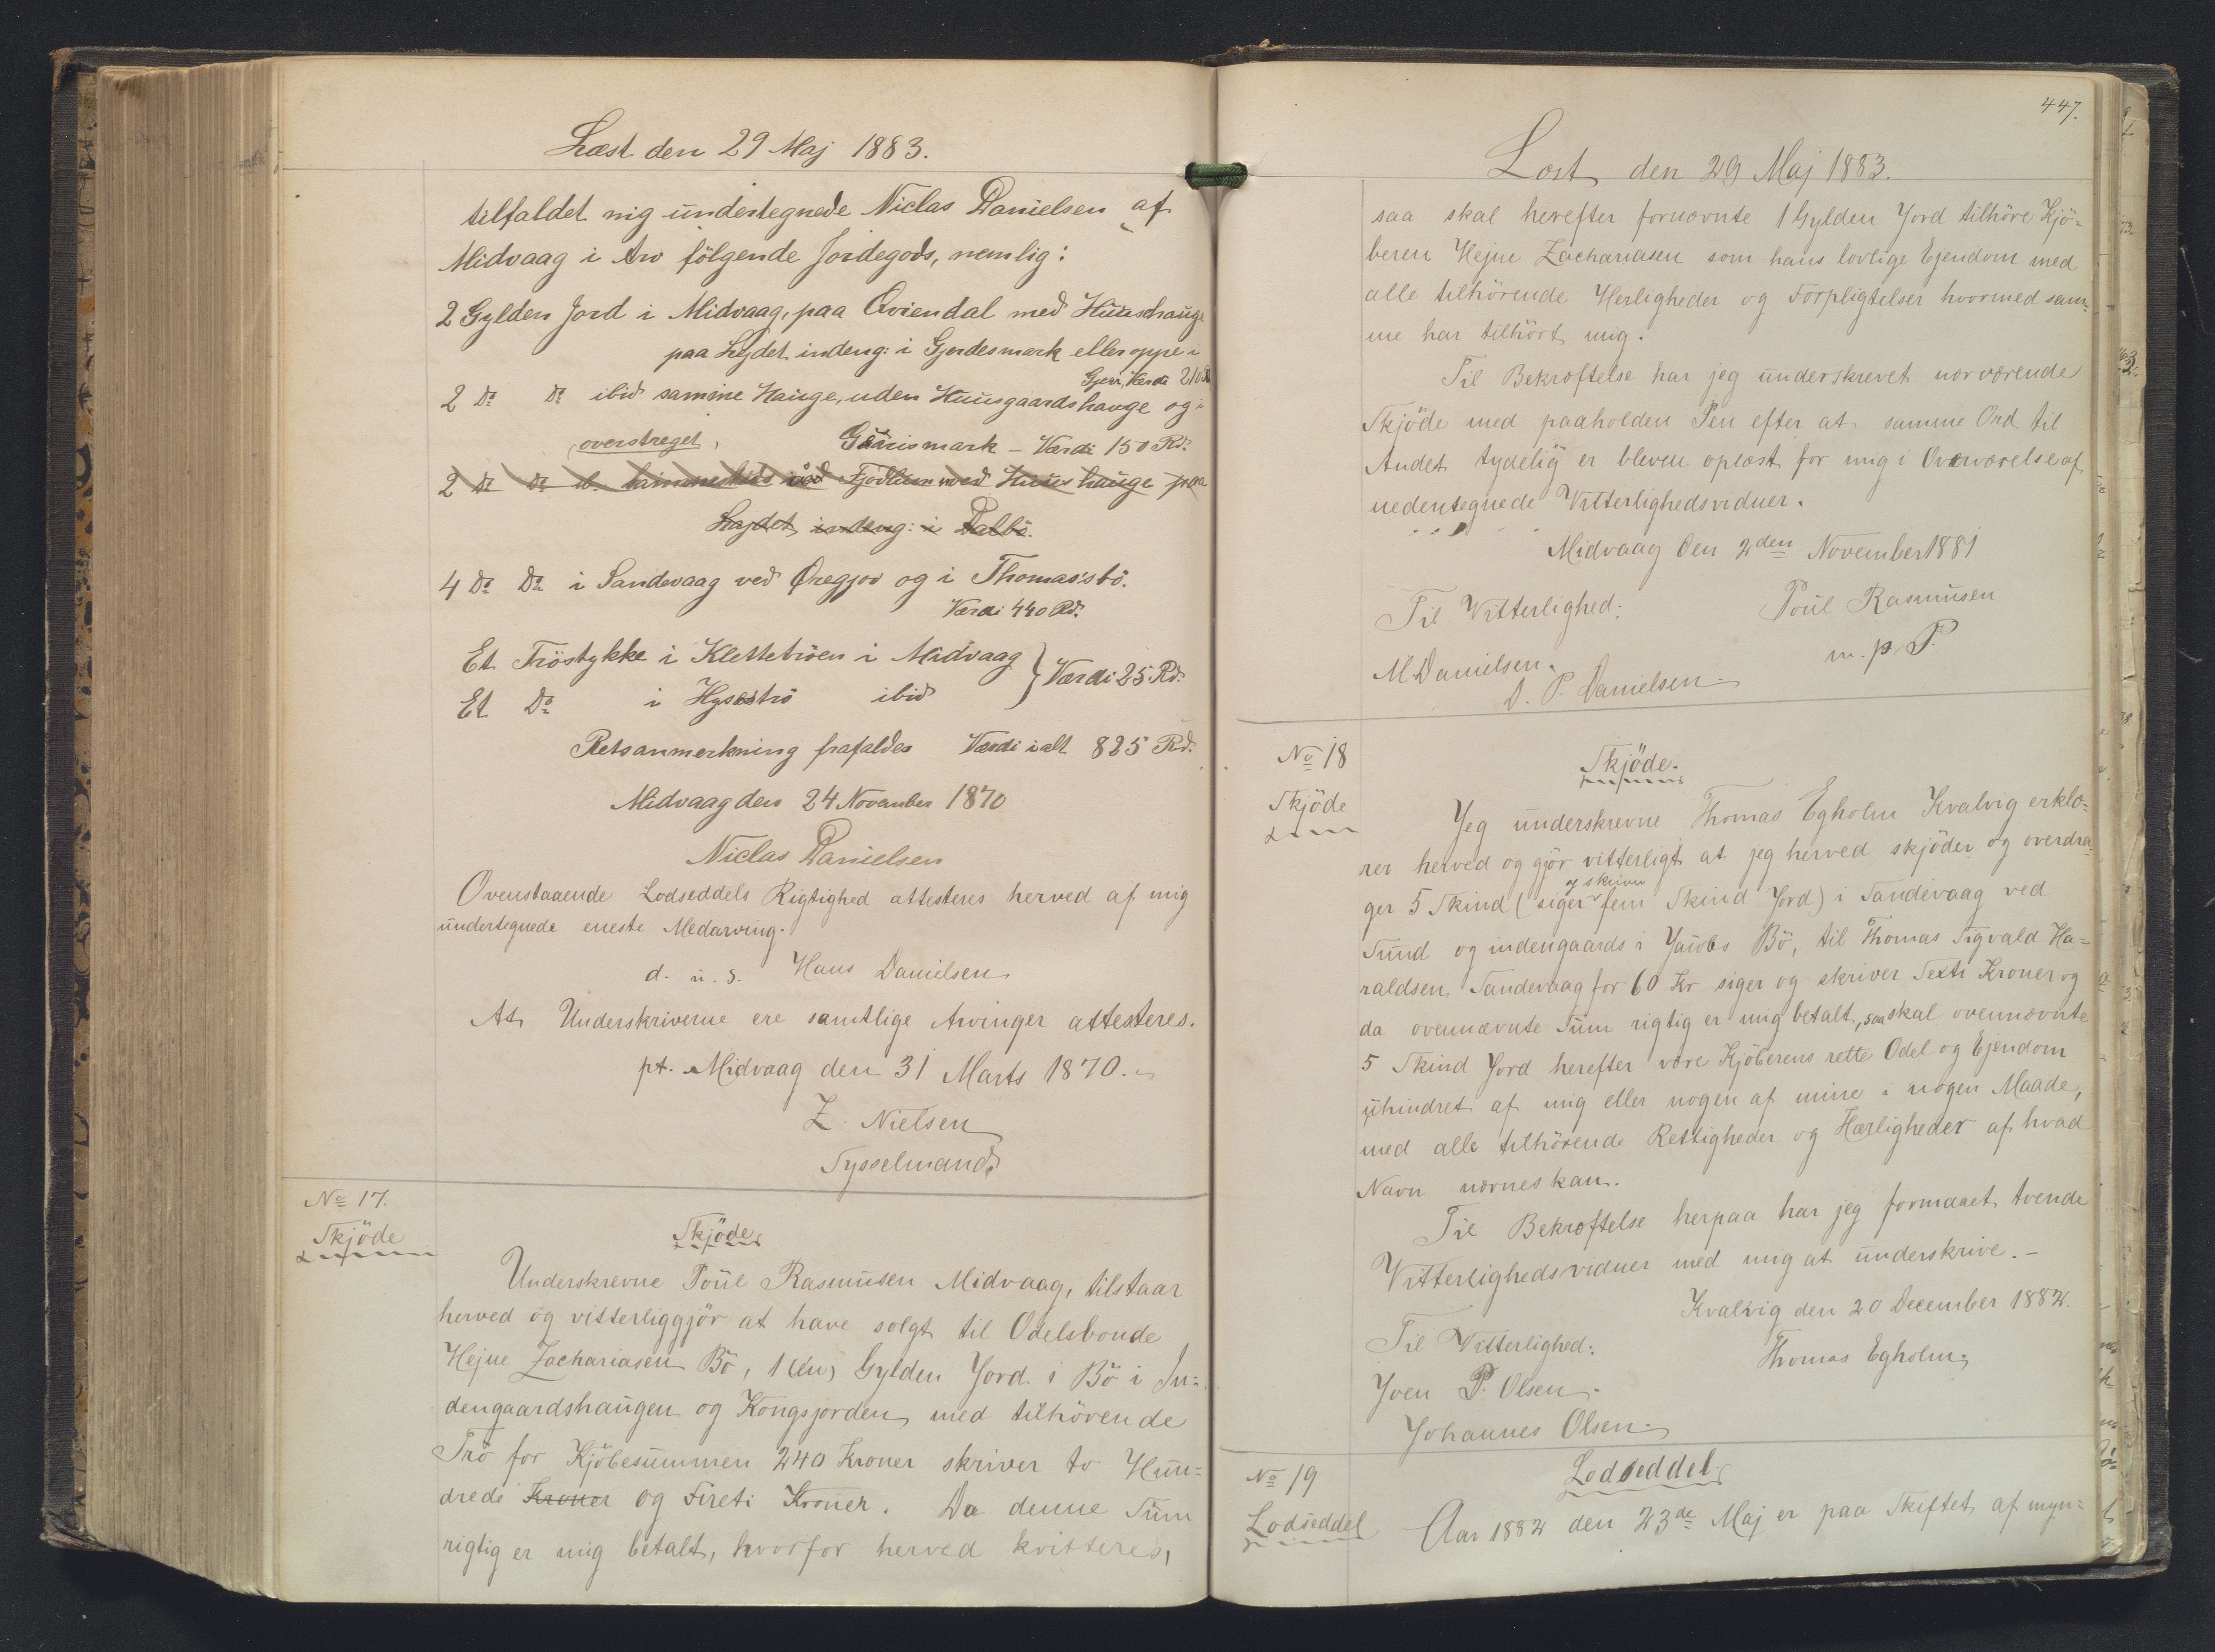 Læst den 29 Maj 1883.
tilfaldet mig undertegnede Niclas Danielsen af
Midvaag i Arv følgende Jordegods, nemlig:
2 Gylden Jord i Midvaag, paa Qviendal med Huushauge
paa Lejdet indeng: i Gjerdesmark eller oppe i
Gjerv, Værdi 210 Rd
2 Do Do ibid samme Hauge, uden Huusgaardshauge og i
(overstreget) Gaarismark – Værdi 150 Rd.
2 Do Do ib. sammesteds ved Fjødlum med Huushauge paa
Lejdet indeng: i Dalbö.
4 Do Do i Sandevaag ved Öregjov og i Thomas'sbö.
Værdi 440 Rd.
Et Tröstykke i Klettetröen i Midvaag } Værdi 25 Rd.
Et Do i Hyseströ ibid
Retsanmerkning frafaldes Værdi ialt 825 Rd.
Midvaag den 24 November 1870
Niclas Danielsen
Ovenstaaende Lodseddels Rigtighed attesteres herved af mig
undertegnede eneste Medarving.
d. u. s. Hans Danielsen
At Underskriverne ere samtlige Arvinger attesteres.
pt. Midvaag den 31 Marts 1870.
Z. Nielsen
Sysselmand
No 17.
Skjöde
Skjöde
Underskrevne Poül Rasmüsen Midvaag, tilstaar
herved og vitterliggjör at have solgt til Odelsbonde
Hejne Zachariasen Bö, 1 (én) Gylden Jord i Bö i In=
dengaardshaugen og Kongsjorden, med tilhörende
Trö for Kjöbesummen 240 Kroner skriver to Hun=
drede Kroner og Fireti Kroner. Da denne Sum
rigtig er mig betalt, hvorfor herved kvitteres,
447.
Læst den 29 Maj 1883.
saa skal herefter fornævnte 1 Gylden Jord tilhöre Kjö=
beren Hejne Zachariasen som hans lovlige Ejendom med
alle tilhörende Herligheder og Forpligtelser hvormed sam=
me har tilhört mig.
Til Bekræftelse har jeg underskrevet nærværende
Skjöde med paaholden Pen efter at samme Ord til
Andet tydelig er bleven oplæst for mig i Overværelse af
nedentegnede Vitterlighedsvidner.
Midvaag den 2den November 1881
Til Vitterlighed: Poül Rasmüsen
m. p. P.
M Danielsen.
D. P. Danielsen
No 18
Skjöde
Skjöde.
Jeg underskrevne Thomas Egholm Kvalvig erklæ=
rer herved og gjör vitterligt at jeg herved skjöder og overdra=
ger 5 Skind (siger og skriver fem Skind Jord) i Sandevaag ved
Sund og indengaards i Jacobs Bö, til Thomas Sigvald Ha=
raldsen Sandevaag for 60 Kr siger og skriver Sexti Kroner og
da ovennævnte Sum rigtig er mig betalt, saa skal ovennævnte
5 Skind Jord herefter være Kjöberens rette Odel og Ejendom
uhindret af mig eller nogen af mine i nogen Maade,
med alle tilhörende Rettigheder og Hærligheder af hvad
Navn nævnes kan.
Til Bekræftelse herpaa har jeg formaaet tvende
Vitterlighedsvidner med mig at underskrive.–
Kvalvig den 20 December 1882.
Til Vitterlighed: Thomas Egholm.
Joen P. Olsen.
Johannes Olsen.
No 19
Lodseddel
Lodseddel
Aar 1882 den 23de Maj er paa Skiftet af myn=